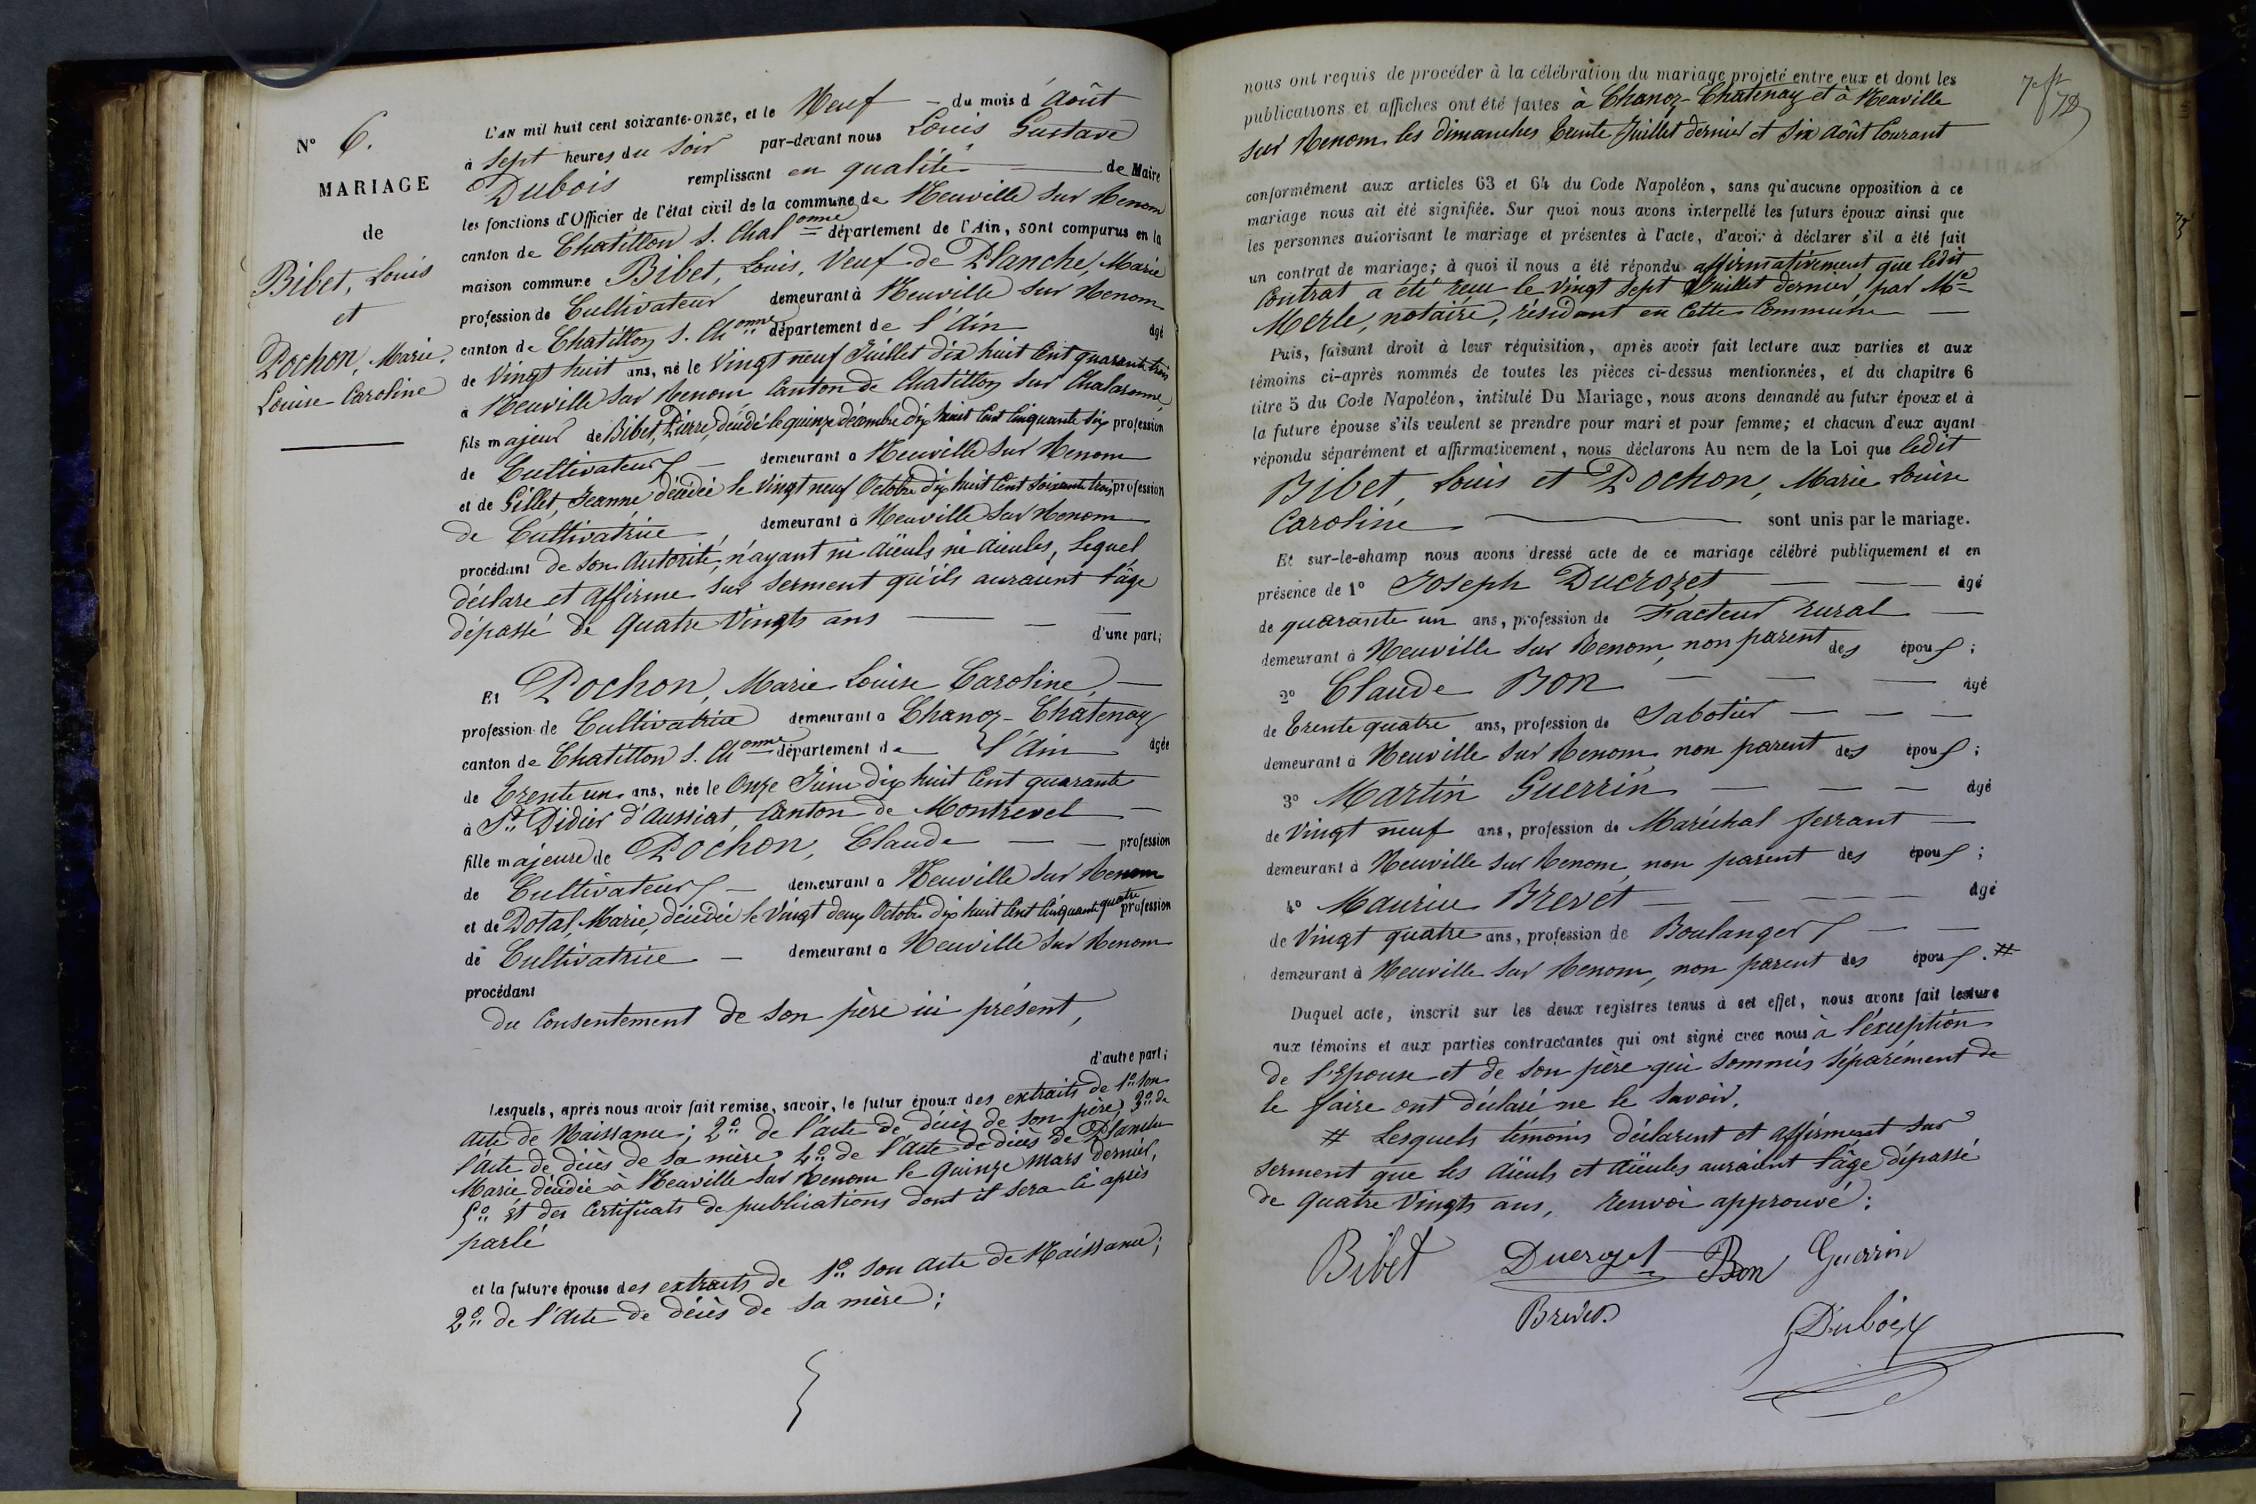 N° 6.
MARIAGE
de
Bibet, Louis
et
Pochon, Marie
Louise Caroline
L'AN mil huit cent soixante-onze, et le Neuf du mois d'Août
à sept heures du soir par-devant nous Louis Gustave
Dubois remplissant en qualité de Maire
les fonctions d'Officier de l'état civil de la commune de Neuville sur Renom
canton de Chatillon s. Chalonne département de l'Ain, sont comparus en la
maison commune Bibet, Louis, Veuf de Planche, Marie
profession de Cultivateur demeurant à Neuville sur Renom
canton de Chatillon s. Chonne département de l'Ain âgé
de Vingt huit ans, né le Vingt neuf Juillet dix huit Cent quarante trois
à Neuville sur Renom Canton de Chatillon sur Chalaronne,
fils majeur de Bibet, Pierre, décédé le quinze décembre dix huit Cent Cinquante six profession
de Cultivateur demeurant à Neuville sur Renom
et de Gillet, Jeanne, décédée le Vingt neuf Octobre dix huit Cent Soixante trois profession
de Cultivatrice, demeurant à Neuville sur Renom
procédant de son Autorité, n'ayant ni Aïeuls ni Aïeules, Lequel
déclare et affirme sur serment qu'ils auraient l'âge
dépassé de quatre Vingts ans
d'une part;
Et Pochon, Marie Louise Caroline,
profession de Cultivatrice demeurant à Chanoz-Chatenay
canton de Chatillon s. Chonne département de l'Ain âgée
de Trente un ans, née le Onze Juin dix huit Cent quarante
à St. Didier d'Aussiat, Canton de Montrevel
fille majeure de Pochon, Claude profession
de Cultivateur demeurant à Neuville sur Renom
et de Dotal, Marie, décédée le Vingt deux Octobre dix huit Cent Cinquante quatre profession
de Cultivatrice demeurant à Neuville sur Renom
procédant
du Consentement de son père ici présent,
d'autre part;
Lesquels, après nous avoir fait remise, savoir, le futur époux des extraits de 1° son
acte de Naissance; 2° de l'acte de décès de son père, 3° de
l'acte de décès de sa mère 4° de l'Acte de décès de Planche
Marie décédée à Neuville sur Renom le quinze mars dernier,
5° Et des Certificats de publications dont il sera ci après
parlé
et la future épouse des extraits de 1° son acte de Naissance;
2° de l'Acte de décès de sa mère;
nous ont requis de procéder à la célébration du mariage projeté entre eux et dont les
publications et affiches ont été faites à Chanoz-Chatenay et à Neuville
sur Renom les dimanches Trente Juillet dernier et Six Août Courant
conformément aux articles 63 et 64 du Code Napoléon, sans qu'aucune opposition à ce
mariage nous ait été signifiée. Sur quoi nous avons interpellé les futurs époux ainsi que
les personnes autorisant le mariage et présentes à l'acte, d'avoir à déclarer s'il a été fait
un contrat de mariage; à quoi il nous a été répondu affirmativement que ledit
Contrat a été reçu le Vingt Sept Juillet dernier, par Me
Merle, notaire, résidant en Cette Commune
Puis, faisant droit à leur réquisition, après avoir fait lecture aux parties et aux
témoins ci-après nommés de toutes les pièces ci-dessus mentionnées, et du chapitre 6
titre 5 du Code Napoléon, intitulé Du Mariage, nous avons demandé au futur époux et à
la future épouse s'ils veulent se prendre pour mari et pour femme; et chacun d'eux ayant
répondu séparément et affirmativement, nous déclarons Au nom de la Loi que ledit
Bibet, Louis et Pochon, Marie Louise
Caroline sont unis par le mariage.
Et sur-le-champ nous avons dressé acte de ce mariage célébré publiquement et en
présence de 1° Joseph Ducrozet âgé
de quarante un ans, profession de Facteur rural
demeurant à Neuville sur Renom, non parent des époux;
2° Claude Bon âgé
de Trente quatre ans, profession de Sabotier
demeurant à Neuville sur Renom non parent des époux;
3° Martin Guerrin âgé
de Vingt neuf ans, profession de Maréchal ferrant
demeurant à Neuville sur Renom, non parent des époux;
4° Maurice Brevet âgé
de Vingt quatre ans, profession de Boulanger
demeurant à Neuville sur Renom, non parent des époux. #
Duquel acte, inscrit sur les deux registres tenus à cet effet, nous avons fait lecture
aux témoins et aux parties contractantes qui ont signé avec nous à l'exception
de l'Epouse et de son père qui sommés séparément de
le faire ont déclaré ne le savoir.
# Lesquels témoins déclarent et affirment sur
serment que les Aïeuls et Aïeules auraient l'âge dépassé
de quatre Vingts ans, renvoi approuvé:
Bibet Ducrozet Bon Guerrin
Brevet
Dubois